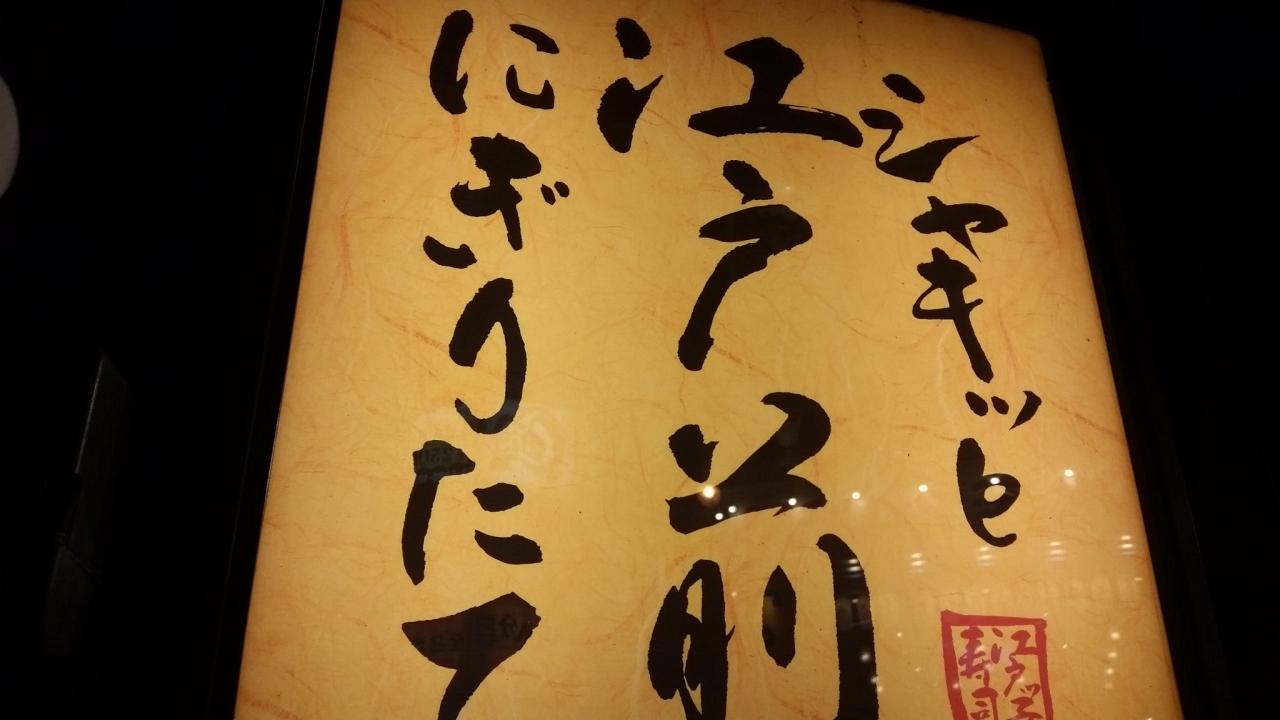 シャキッと
江戸前
にぎりたて
江戸ッ子
寿司